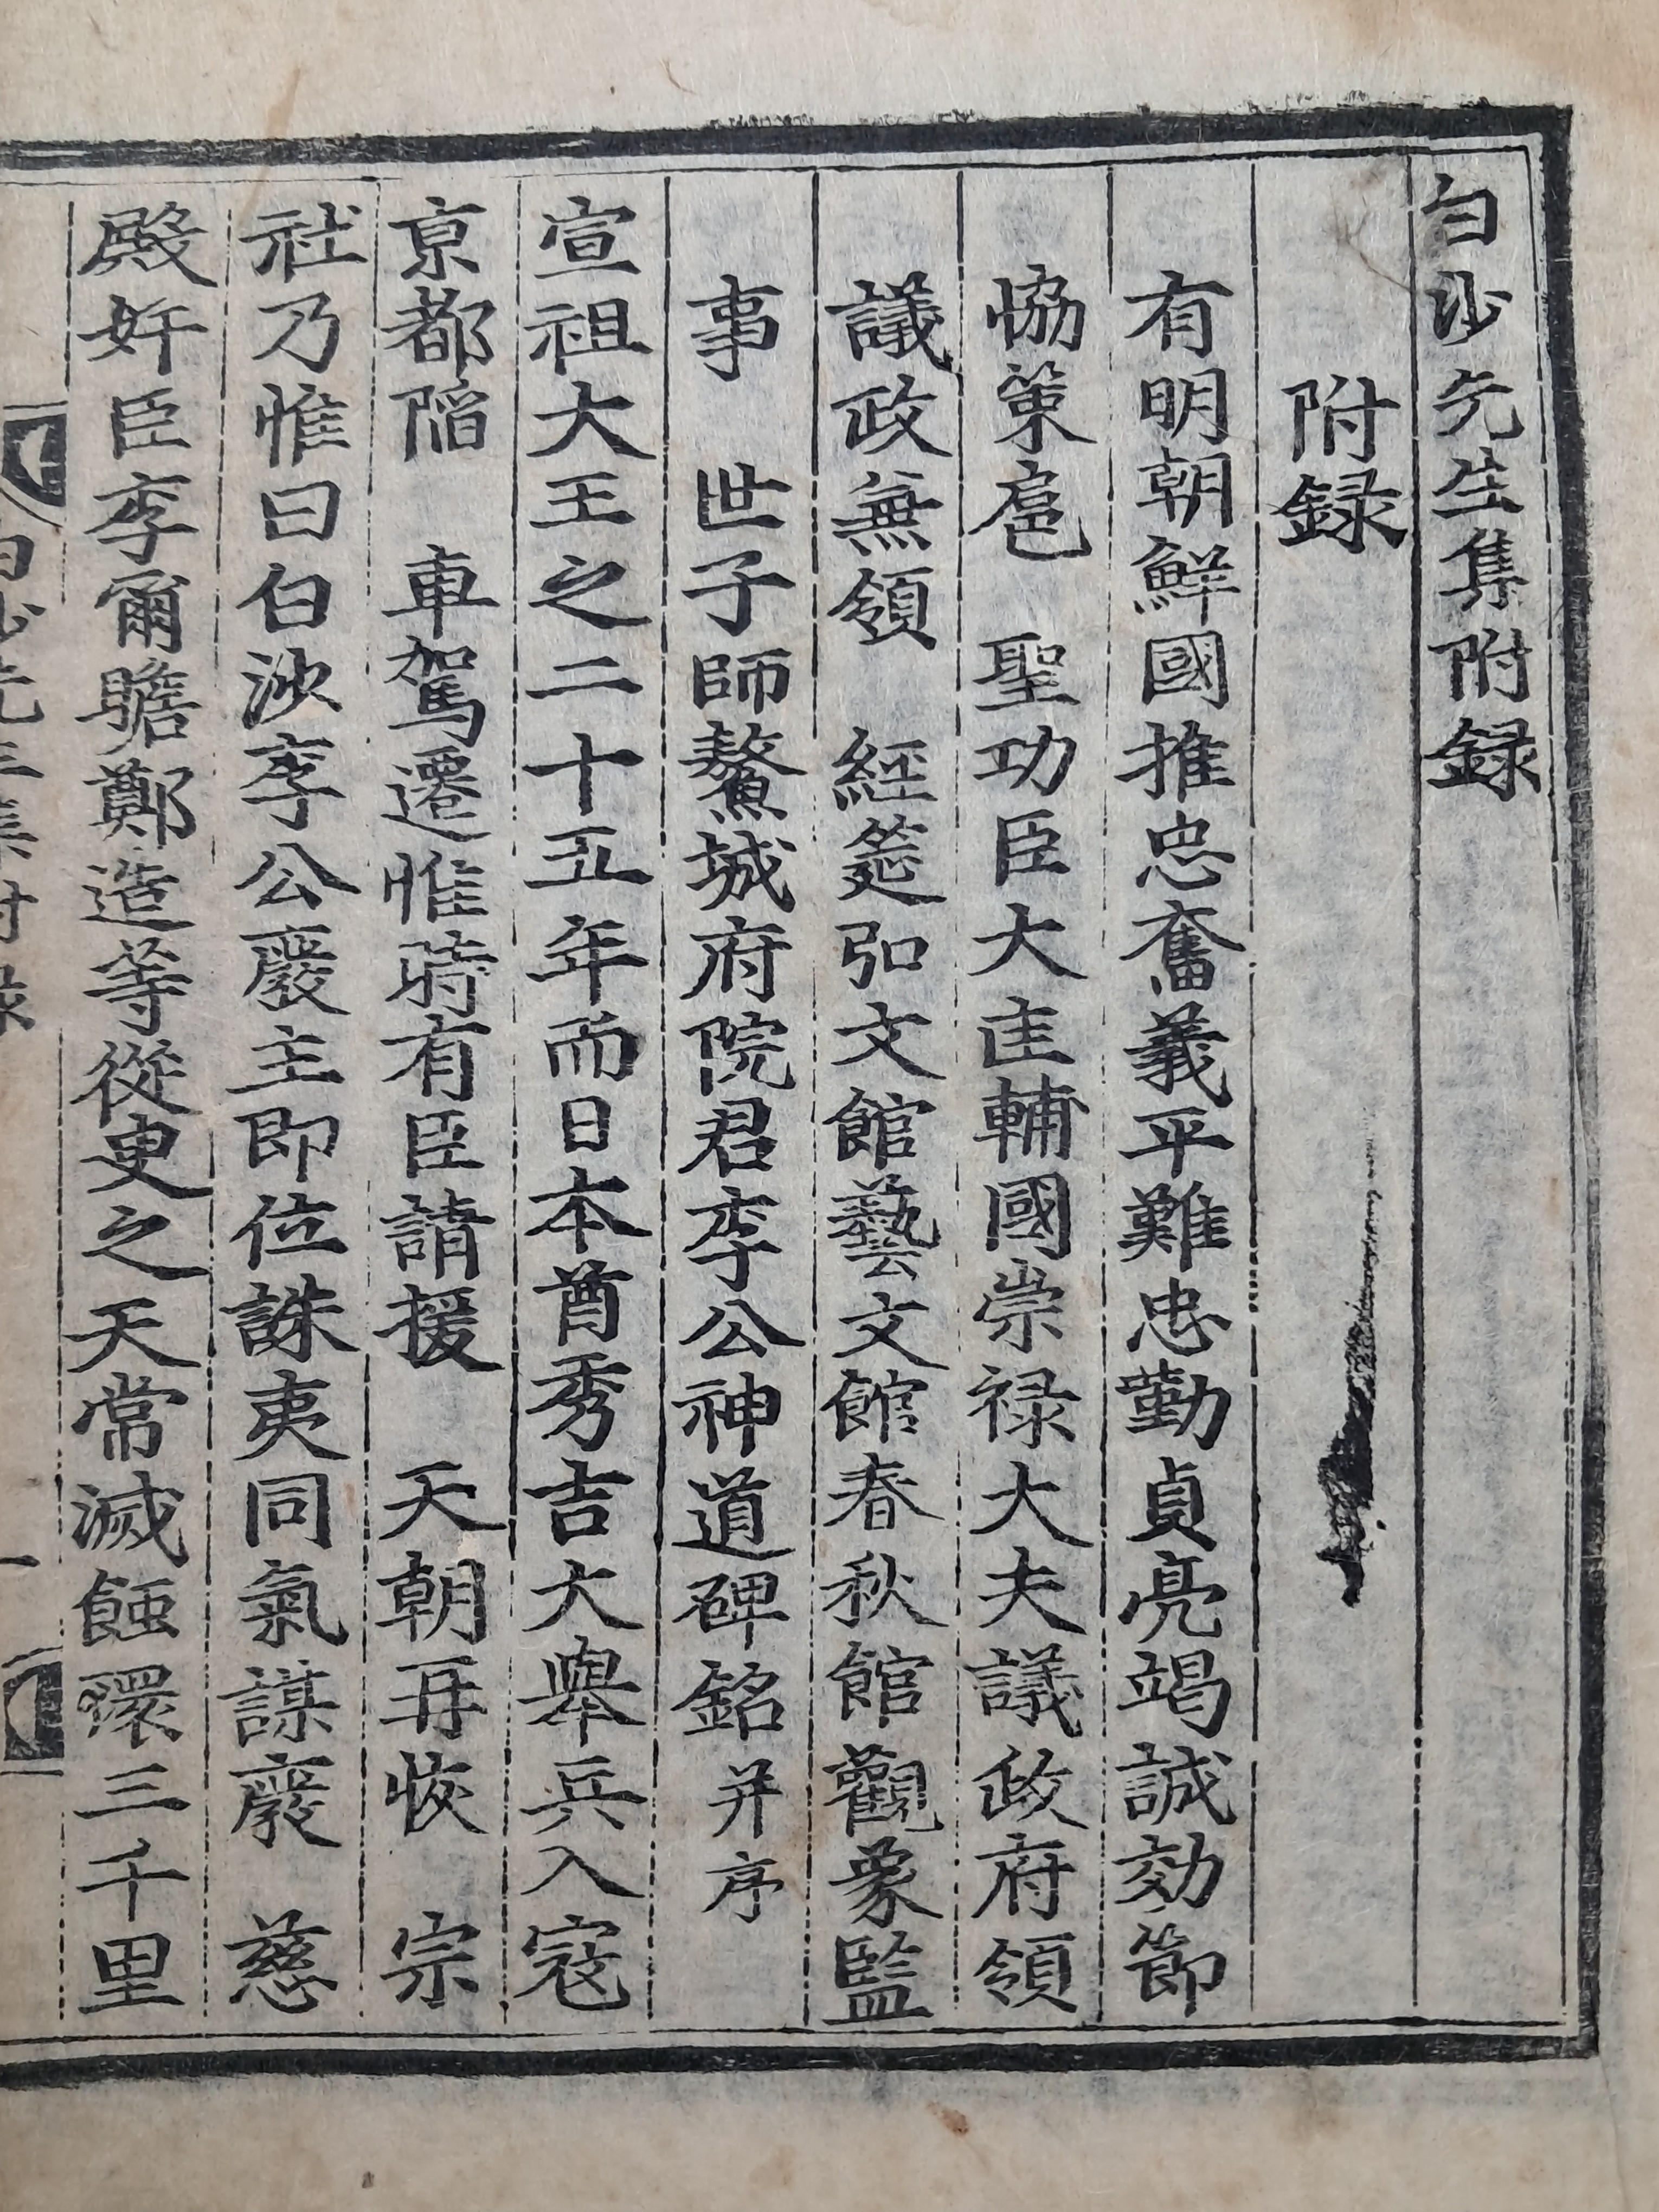 白沙先生集附録
附録
有明朝鮮國推忠奮義平難忠勤貞亮竭誠効節
恊策扈 聖功臣大匡輔國崇禄大夫議政府領
議政兼領 經筵弘文館藝文館春秋館觀象監
事 世子師鰲城府院君李公神道碑銘并序
宣祖大王之二十五年而日本酋秀吉大擧兵入寇
京都陷 車駕遷惟時有臣請援 天朝再恢 宗
社乃惟曰白沙李公廢主即位誅夷同氣謀廢 慈
殿奸臣李爾瞻鄭造等從臾之天常滅蝕環三千里
白沙先生集附録
一